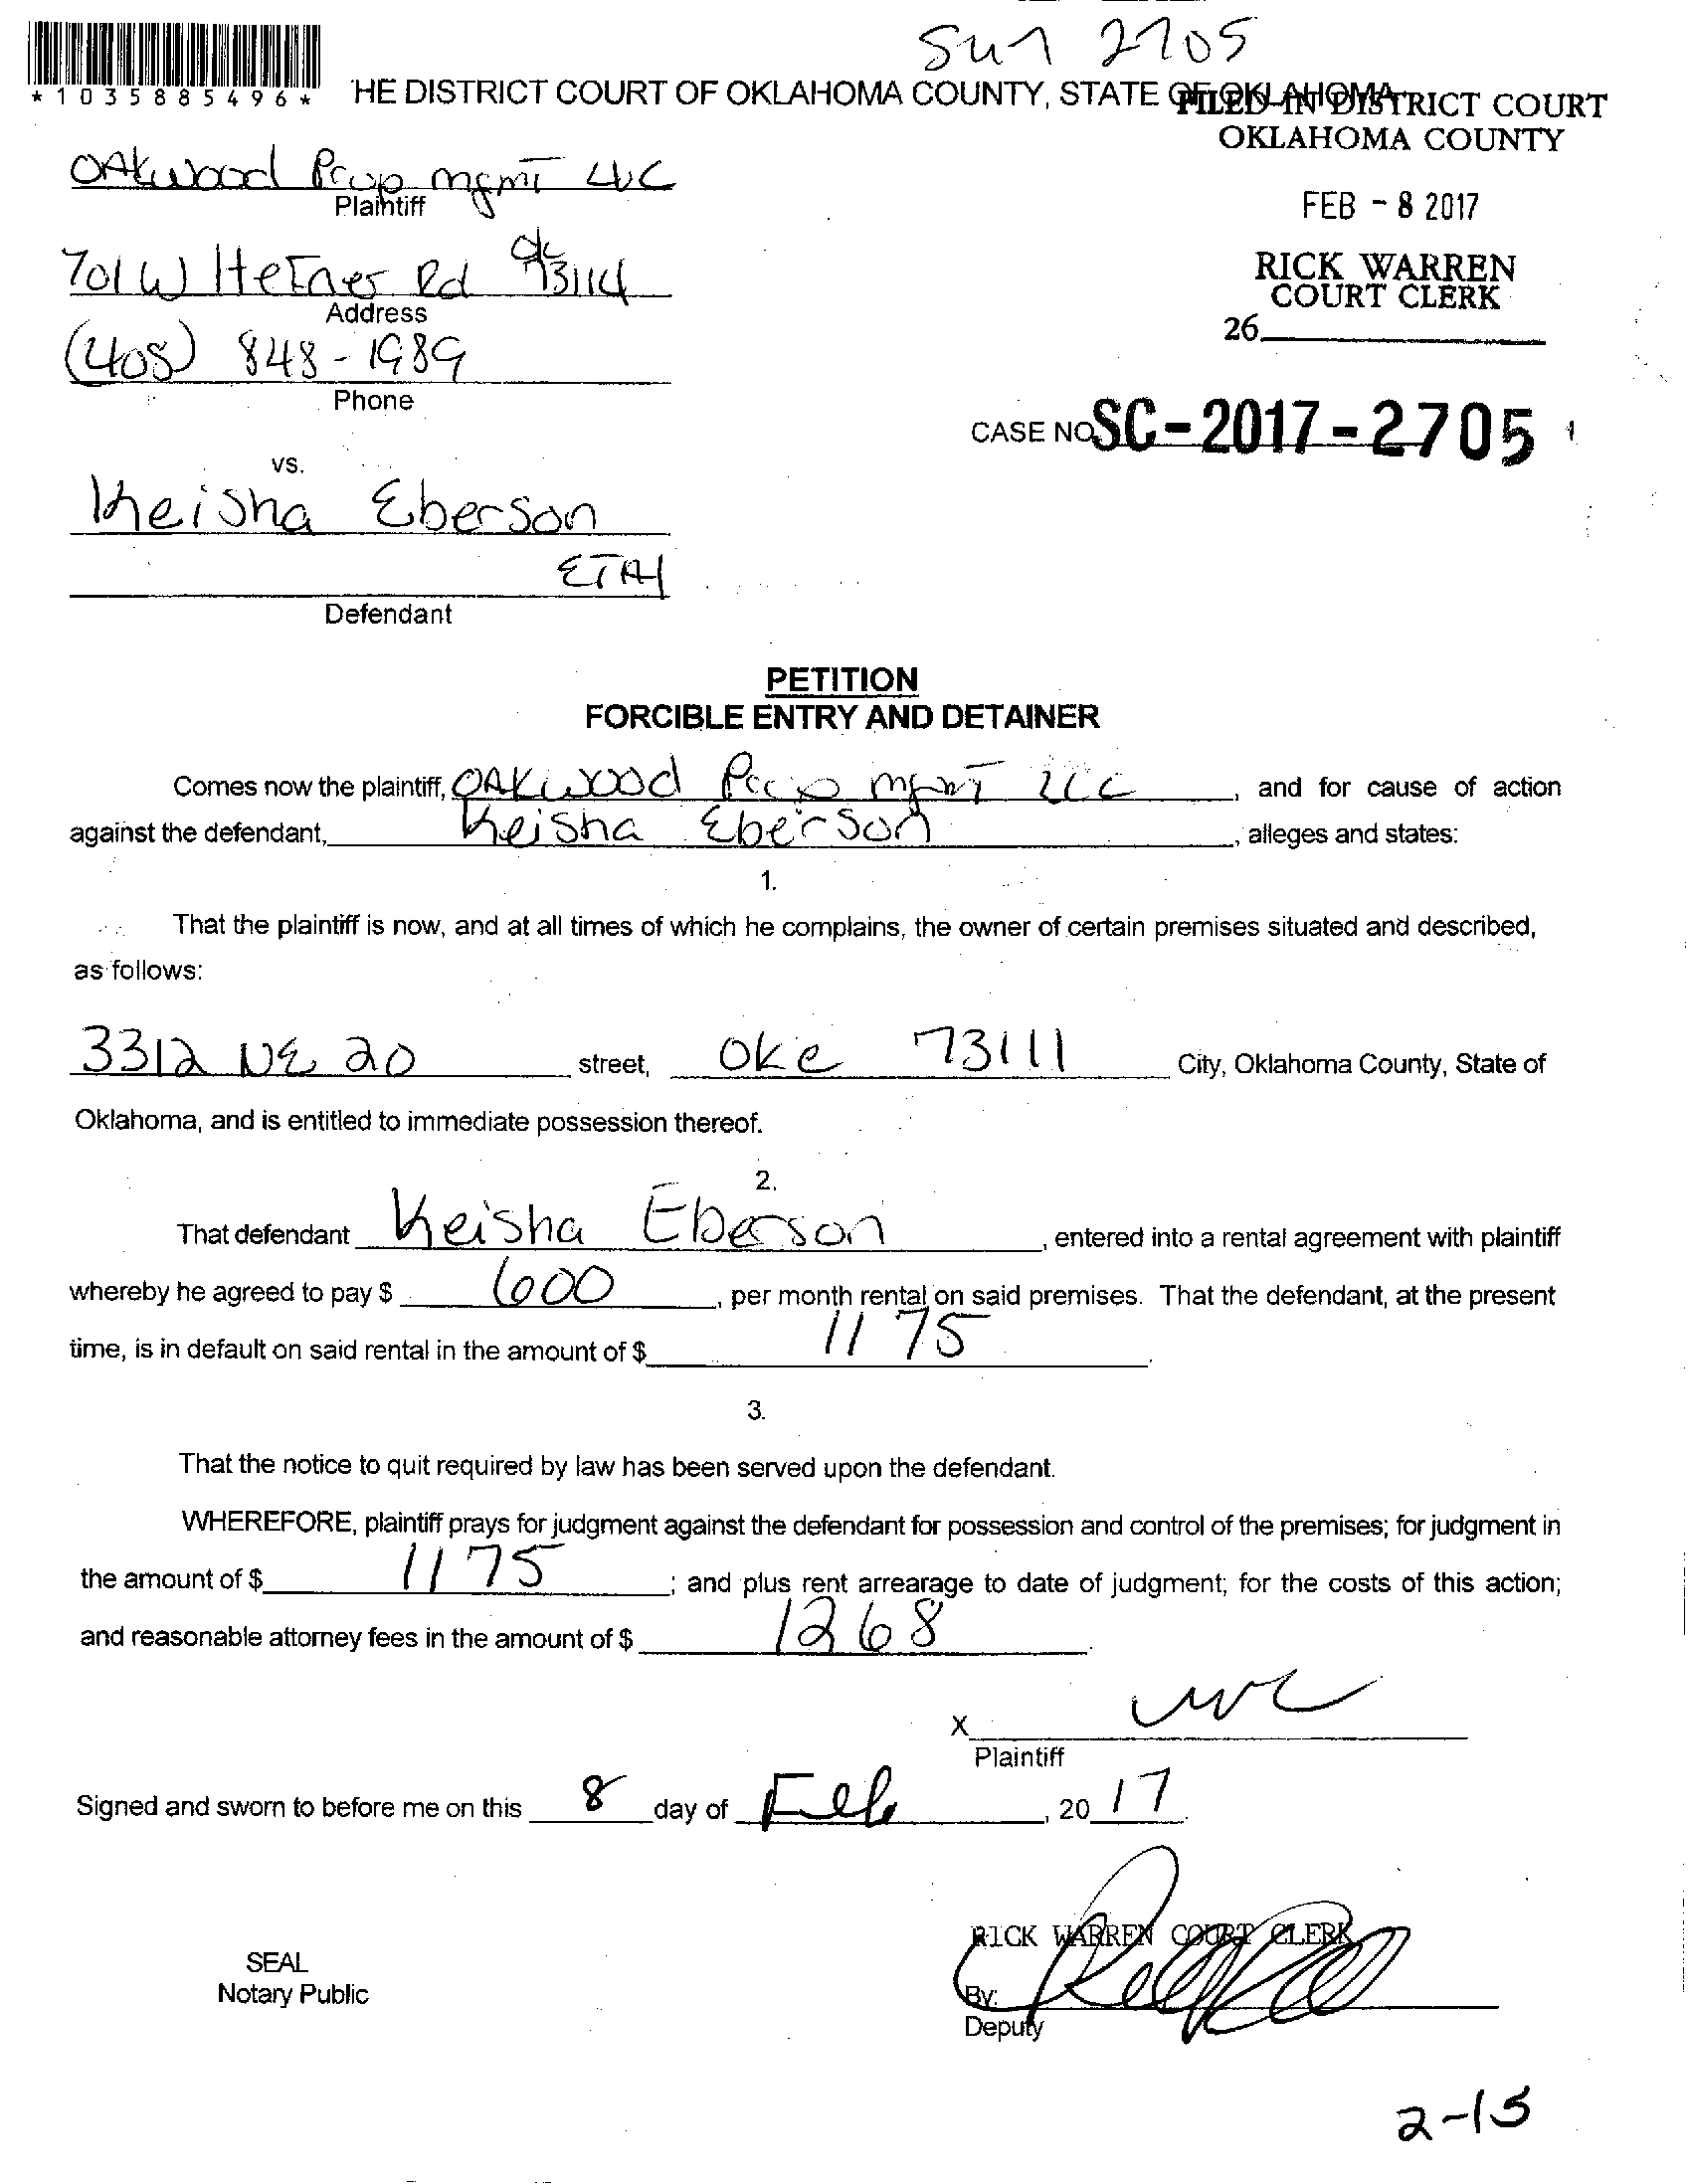 Sun 2705
*1035885496*
HE DISTRICT COURT OF OKLAHOMA COUNTY, STATE OF OKLAHOMA
FILED IN DISTRICT COURT
OKLAHOMA COUNTY
OAkwood Prop mgmT LLC
Plaintiff
FEB - 8 2017
701 W HeFner Rd okc 73114
Address
RICK WARREN
COURT CLERK
26
(405) 848-1989
Phone
CASE NO SC-2017-2705
vs.
Keisha Eberson
ETAl
Defendant
PETITION
FORCIBLE ENTRY AND DETAINER
Comes now the plaintiff, OAKwood Prop mgmT LLC, and for cause of action
against the defendant, Keisha Eberson, alleges and states:
1.
That the plaintiff is now, and at all times of which he complains, the owner of certain premises situated and described,
as follows:
3312 NE 20 street, OKC 73111 City, Oklahoma County, State of
Oklahoma, and is entitled to immediate possession thereof.
2.
That defendant Keisha Eberson, entered into a rental agreement with plaintiff
whereby he agreed to pay $ 600, per month rental on said premises. That the defendant, at the present
time, is in default on said rental in the amount of $ 1175.
3.
That the notice to quit required by law has been served upon the defendant.
WHEREFORE, plaintiff prays for judgment against the defendant for possession and control of the premises; for judgment in
the amount of $ 1175; and plus rent arrearage to date of judgment; for the costs of this action;
and reasonable attorney fees in the amount of $ 1268.
X
Plaintiff
Signed and sworn to before me on this 8 day of Feb, 2017.
RICK WARREN COURT CLERK
SEAL
Notary Public
By:
Deputy
2-15